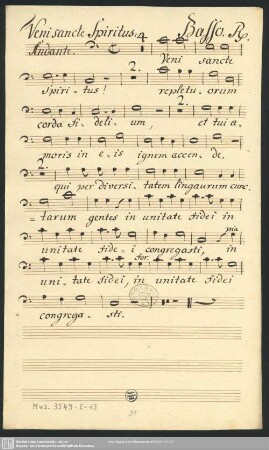 Veni sancte Spiritus. 4. Basso. R.
Andante.
Veni sancte
2.
Spiri - tus! repletu - orum
2.
corda fi - deli - um, et tui a -
moris in e - is ignem accen - de,
2.
qui per diversi - tatem linguarum cunc
= tarum gentes in unitate fidei in
pia
unitate fide - i congregasti, in
for.
uni - tate fidei, in unitate fidei
congrega - sti.
Mus. 3549-E-13